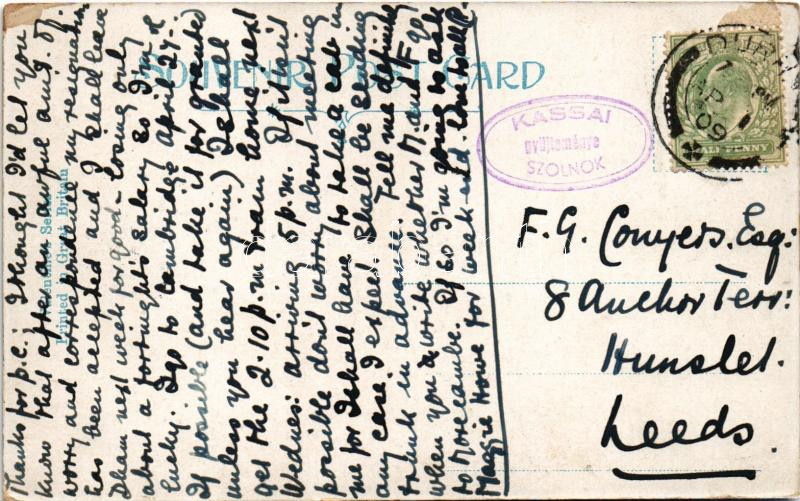 Thanks for p.c.; I thought I'd let you
know that after an awful amt. of
worry and correspondence my resignation
has been accepted and I shall leave
Dham next week for good - losing only
about a fortnight's salary so I'm
lucky. I go to Cambridge April 27. &
if possible (and take it for granted
unless you hear again) I shall
get the 2.10 p.m. train home next
Wednes: arriving 5 p.m. If it isn't
possible don't worry about meeting
me for I shall have to take a cab in
any case I expect. Shall be sending
trunk in advance. Tell me definitely
when you write whether M. and F. go
to Morecambe. If so I'm going to ask
Maggie Howe for week-end.
SOUVENIR POST CARD
Printed in Great Britain
KASSAI
gyüjteménye
SZOLNOK
HALF PENNY
F. G. Conyers. Esq:
8 Anchor Terr:
Hunslet.
Leeds.